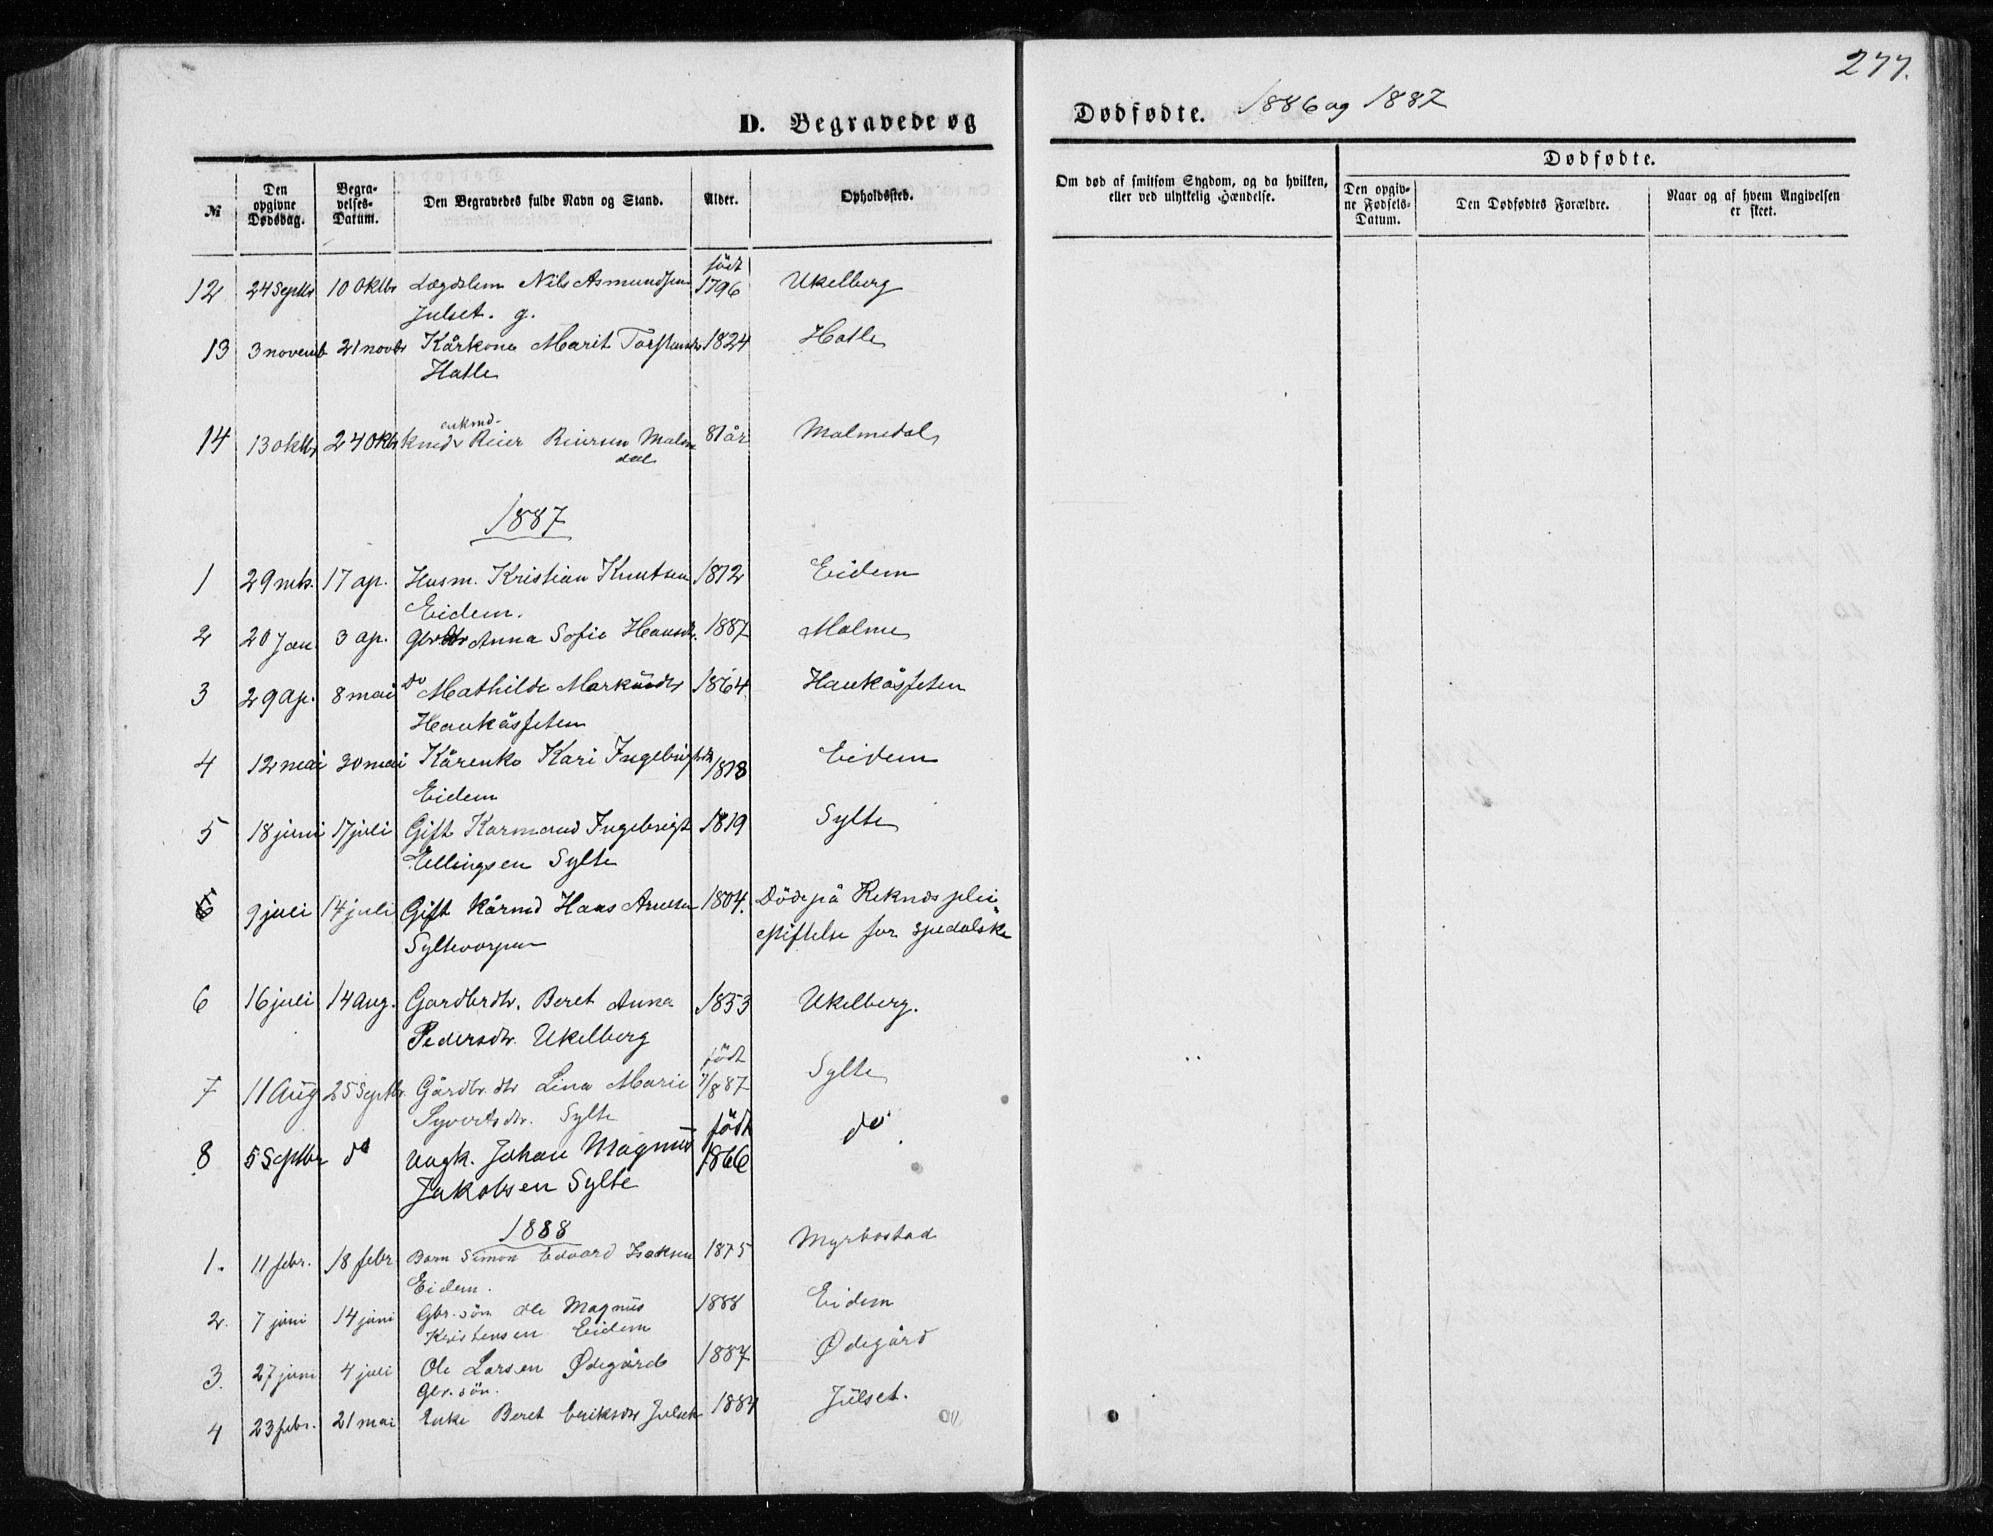 277.
D. Begravede og Dødfødte. 1886 og 1887
№ Den opgivne Dødsdag. Begravelses-Datum. Den Begravedes fulde Navn og Stand. Alder. Opholdssted. Om død af smitsom Sygdom, og da hvilken, eller ved ulykkelig Hændelse. Dødfødte. Den opgivne Fødsels-Datum. Den Dødfødtes Forældre. Naar og af hvem Angivelsen er skeet.
12 24 septbr 10 oktbr Lægdslem Nils Asmundsen født 1796 Ukelberg
Julset. g.
13 3 novemb 21 novbr Kårkone Marit Torstensdr 1824 Hatle
Hatle
14 13 oktbr 24 oktbr enkmd. Reier Reiersen Malmedal 81 år Malmedal
1887
1 29 mts. 17 ap. Husm. Kristian Knutsen 1812 Eidem
Eidem.
2 20 Jan. 3 ap. Gbrdtr Anna Sofie Hansdr. 1887 Malme
3 29 ap. 8 mai do Mathilde Markusdr 1864 Haukåsfeten
Haukåsfeten
4 12 mai 30 mai Kårenke Kari Ingebrigtsdr 1818 Eidem
Eidem
5 18 juni 17 juli Gift Karmand Ingebrigt 1819 Sylte
Ellingsen Sylte
6 9 juli 14 juli Gift Kårmd Hans Arnesen 1804. Døde på Reknds pleistiftelse for spedalske
6 16 juli 14 aug. Gardbrdtr. Beret Anna 1853 Ukelberg.
Pedersdtr. Ukelberg
7 11 Aug 25 Septbr. Gårdbr. dtr Lina Marie født 7/887 Sylte
Syvertsdtr. Sylte
8 5 Septbr do Ungk. Johan Magnus født 1866 do.
Jakobsen Sylte
1888
1. 11 febr. 18 febr Barn Simon Edvard Isaksen 1875 Myrbostad
Eidem.
2. 7 juni 14 juni Gbr. søn Ole Magnus 1888 Eidem
Kristensen Eidem
3. 27 juni 4 juli Ole Larsen Ødegård 1887 Ødegård
Gbr. søn.
4 23 febr. 21 mai Enke Beret Eriksdtr Julset Julset.